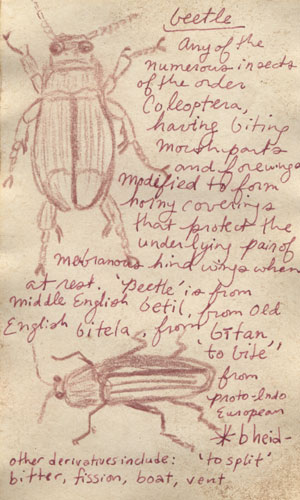 beetle
Any of the
numerous insects
of the order
Coleoptera,
having biting
mouthparts
and forewings
modified to form
horny coverings
that protect the
underlying pair of
mebranous hind wings when
at rest. 'Beetle' is from
Middle English betil, from Old
English bitela, from bītan,
'to bite',
from
proto-Indo
European
*bheid-
'to split'
other derivatives include:
bitter, fission, boat, vent